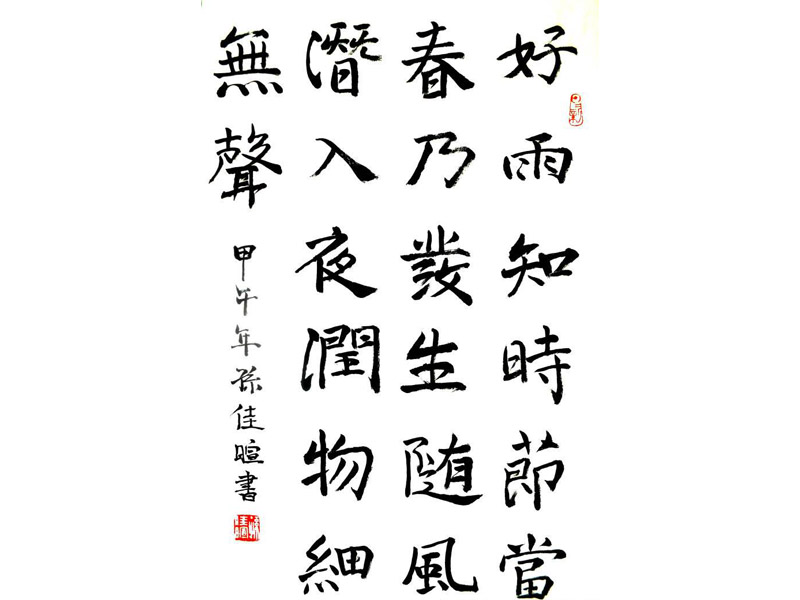 好雨知時節當
春乃發生随風
潛入夜潤物細
無聲
甲午年孫佳暄書